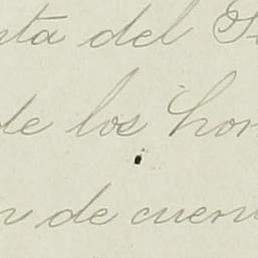 ta del
de los hon
n de cuen